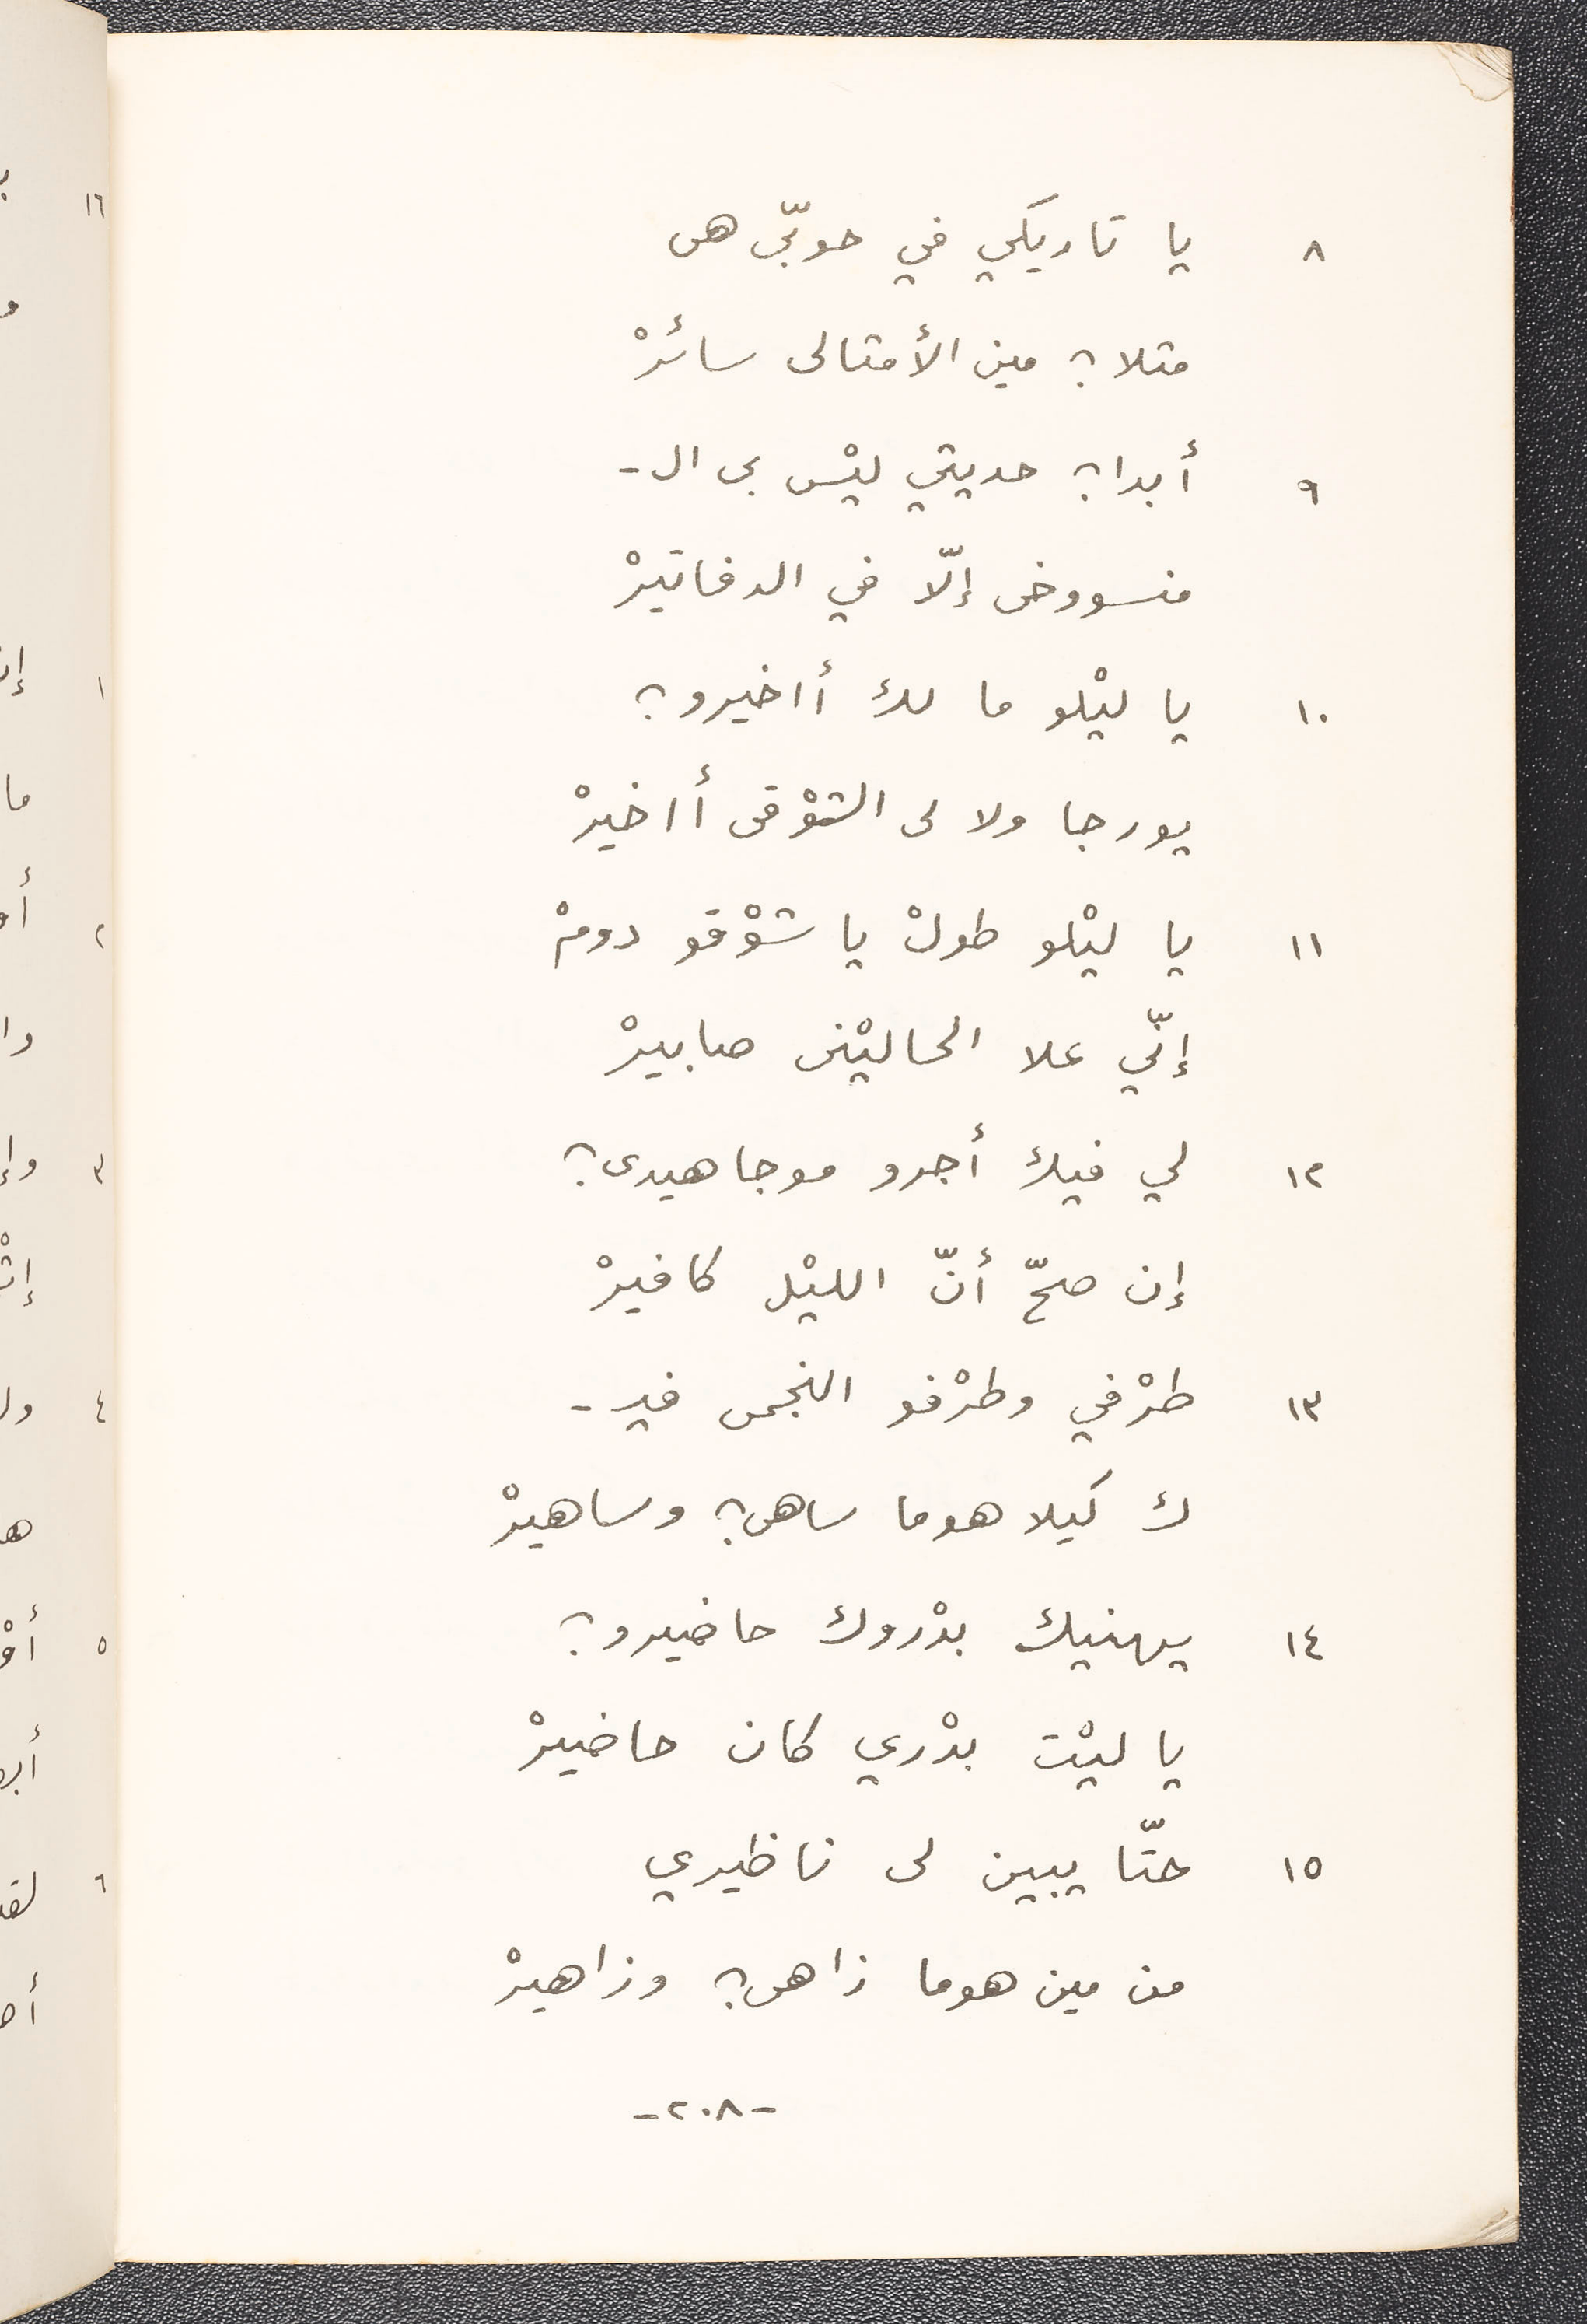 ٨ يا تاريكي في حوبّى هى
متلا؟ مين الأمتالى سائرْ
٩ أبدا؟ حديتي ليْس بى ال-
منسووخى إلّا في الدفاتيرْ
١٠ يا ليْلو ما لك أاخيرو؟
يورجا ولا لى الشوْقى أاخيرْ
١١ يا ليْلو طولْ يا شوْقو دومْ
إنّي علا الحاليْنى صابيرْ
١٢ لي فيك أجرو موجاهيدى؟
إن صحّ أنّ الليْل كافيرْ
١٣ طرْفي وطرْفو النجمى في-
ك كيلا هوما ساهى؟ وساهيرْ
١٤ يهنيك بدْروك حاضيرو؟
يا ليْت بدْري كان حاضيرْ
١٥ حتّا يبين لى ناظيري
من مين هوما زاهى؟ وزاهيرْ
-٢٠٨-
١٦
١
ما
٢
وا
٣
٤
٥
٦